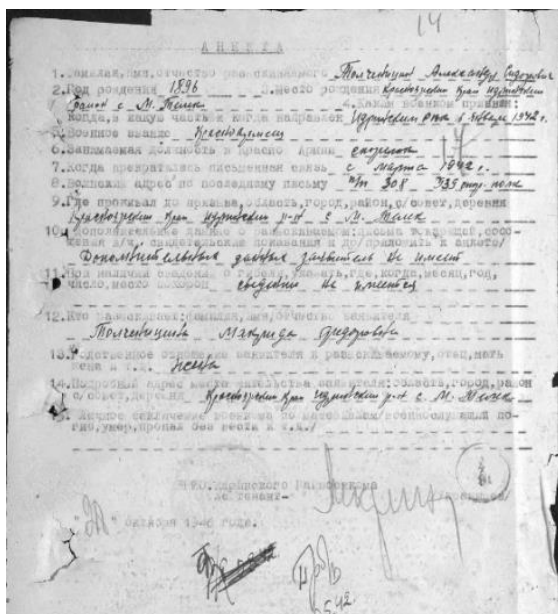 14
АНКЕТА
1. Фамилия, имя, отчество разыскиваемого Александр Сидорович
2. Год рождения 1896 3. Место рождения Красноярский край Идринский
район с. М. Телек 4. Каким военкоматом призван:
когда, в какую часть и когда направлен Идринским РВК в январе 1942 г.
5. Военное звание Красноармеец
17
6. Занимаемая должность в Красной Армии
7. Когда прекратилась письменная связь с марта 1942 г.
8. Воинский адрес по последнему письму п/п 308 полк
9. Где проживал до призыва, область, город, район, с/совет, деревня
Красноярский край Идринский р-н с. М. Телек
10. Дополнительные данные о разыскиваемом: письма товарищей,
свидетельские показания и др. приложить к анкете/
Дополнительных данных заявитель не имеет
11. При наличии сведений о гибели, указать, где, когда, месяц, год,
число, место похорон сведений не имеется
12. Кто разыскивает: фамилия, имя, отчество заявителя
Федоровна
13. Родственное отношение заявителя к разыскиваемому, отец, мать
жена и т.д. жена
14. Подробный адрес места жительства заявителя: область, город, район
с/совет, деревня Красноярский край Идринский р-н с. М. Телек
15. Личное заключение военкома по материалам /военнослужащий по-
гиб, умер, пропал без вести и т.д./
Идринского Райвоенкома
лейтенант-
" октября 1946 года.